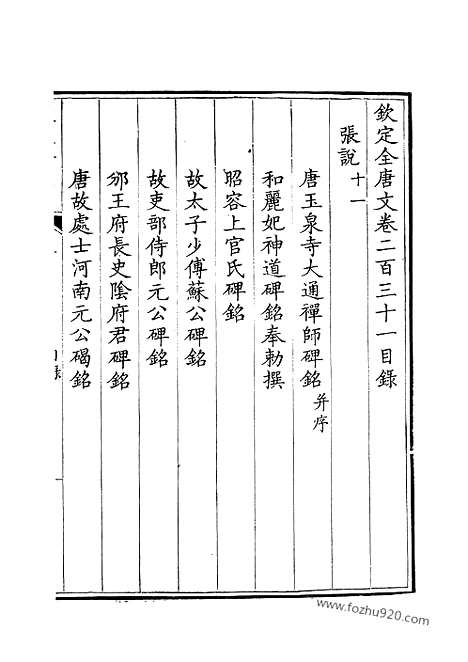 欽定全唐文卷二百三十一目錄
張說十一
唐玉泉寺大通禪師碑銘并序
和麗妃神道碑銘奉勅撰
昭容上官氏碑銘
故太子少傅蘇公碑銘
故吏部侍郎元公碑銘
邠王府長史陰府君碑銘
唐故處士河南元公碣銘
www.fozhu920.com